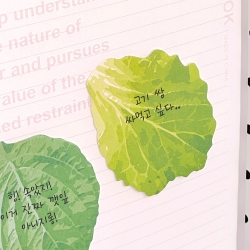 understand
the nature of
er and pursues
value of the
ed restraint
고기 쌈
싸먹고 싶다..
힝 속았지!
이거 진짜 깻잎
아니지롱!